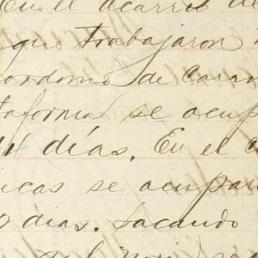 En el acarreo de
que trabajaron
mayordomo de Caran
taforma se ocup
4 días. En el c
icas se ocupar
0 dias. Sacando